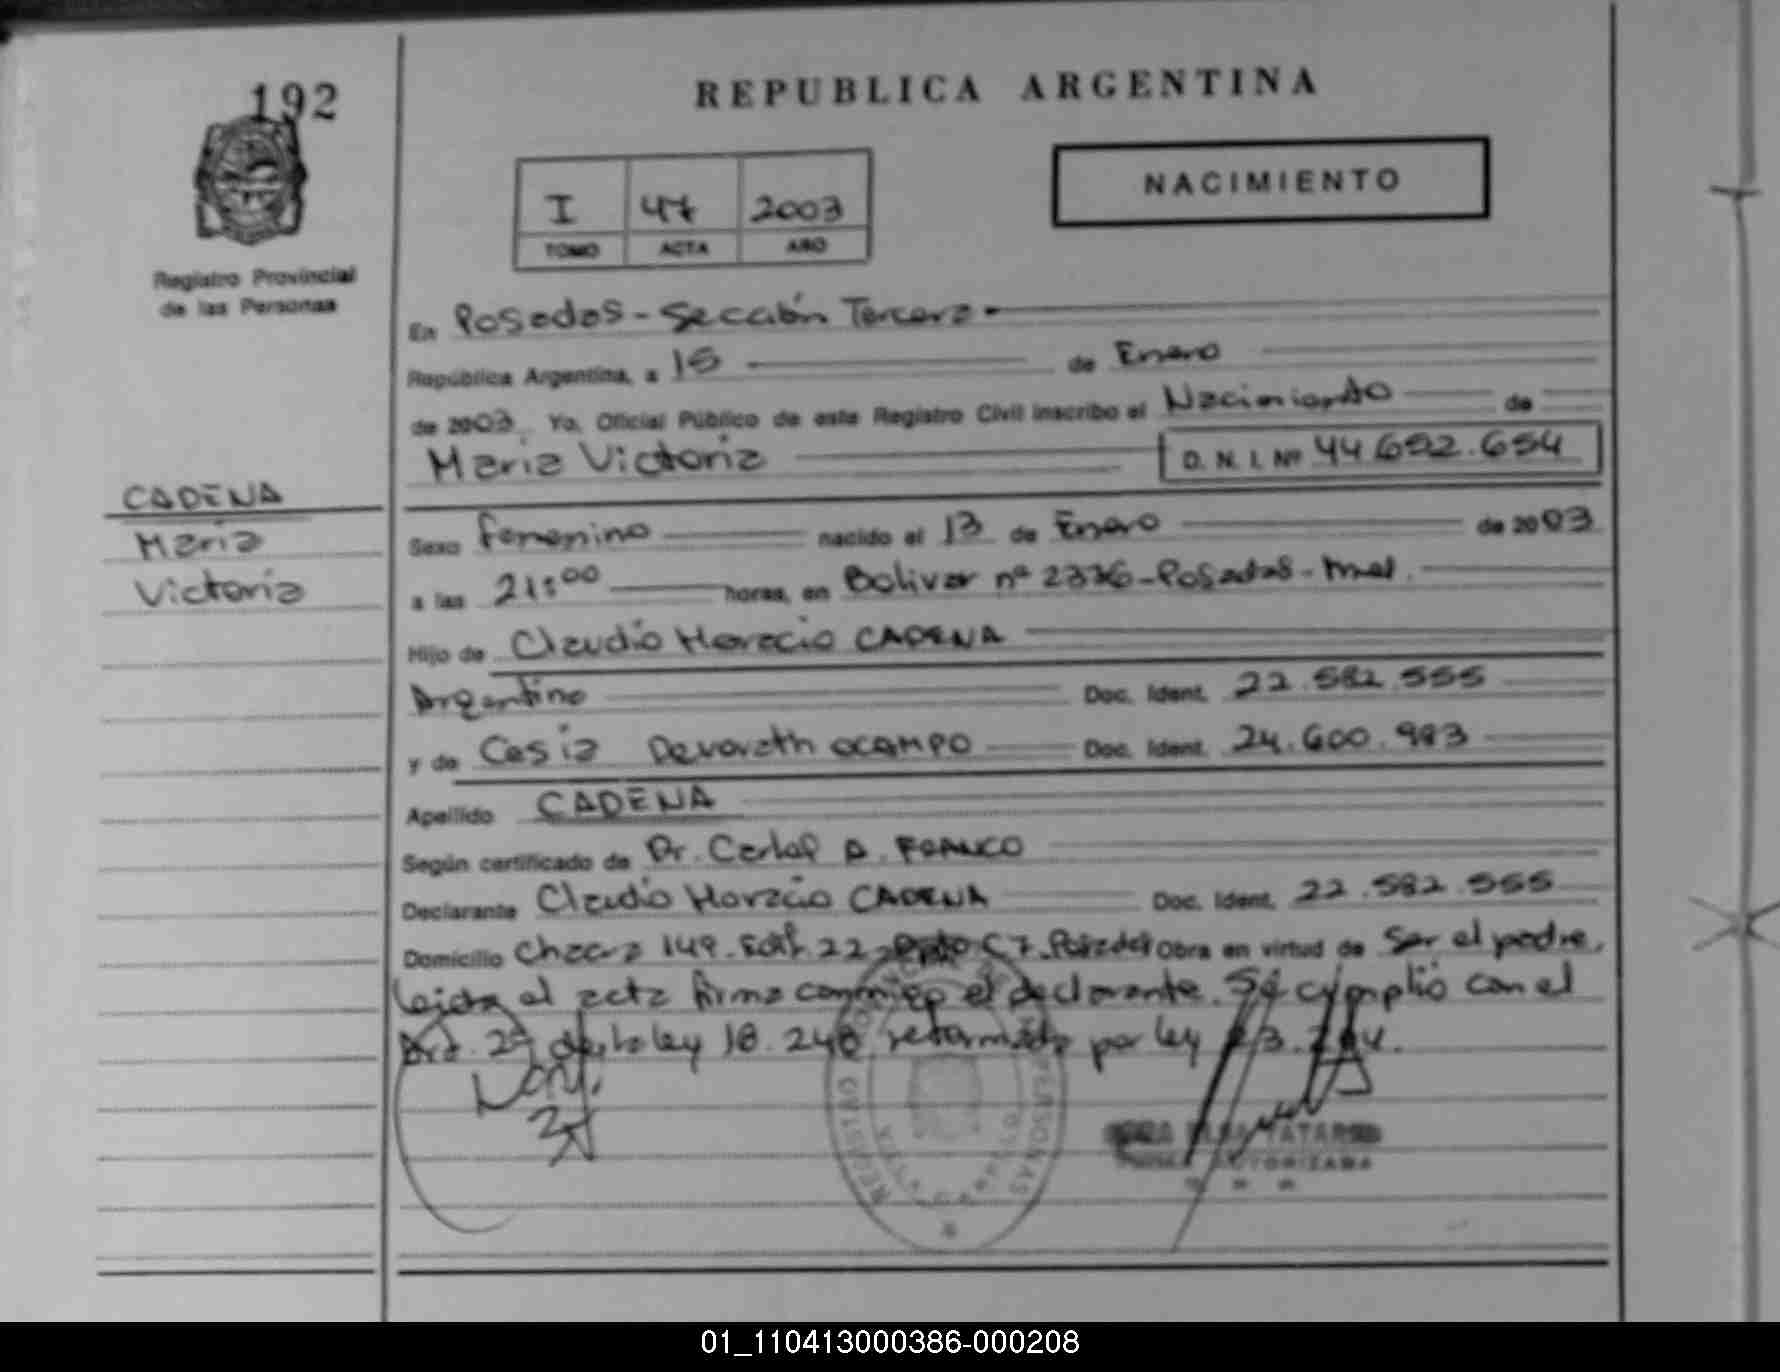 192
REPUBLICA ARGENTINA
NACIMIENTO
I 47 2003
TOMO ACTA AÑO
Registro Provincial
de las Personas
En Posadas - Sección Tercera -
República Argentina, a 15 de Enero
de 2003 Yo, Oficial Público de este Registro Civil inscribo el Nacimiento de
María Victoria D. N. I. Nº 44.652.654
CADENA
María
Victoria
Sexo femenino nacido el 13 de Enero de 2003
a las 21:00 horas, en Bolivar nº 2376 - Posadas - Mnes.
Hijo de Claudio Horacio CADENA
Argentino Doc. Ident. 22.582.555
y de Casia OCAMPO Doc. Ident. 24.600.983
Apellido CADENA
Según certificado de Dr. Carlos A. FRANCO
Declarante Claudio Horacio CADENA Doc. Ident. 22.582.555
Domicilio Chacra 149 - Edif. 22 - Dpto C 7 - Posadas Obra en virtud de Ser el padre,
leida el acta firma conmigo el declarante. Se cumplió con el
Art. de la ley 18.248 reformada por ley 23.264.
REGISTRO PROVINCIAL DE LAS PERSONAS
AUTORIZADA
01_110413000386-000208